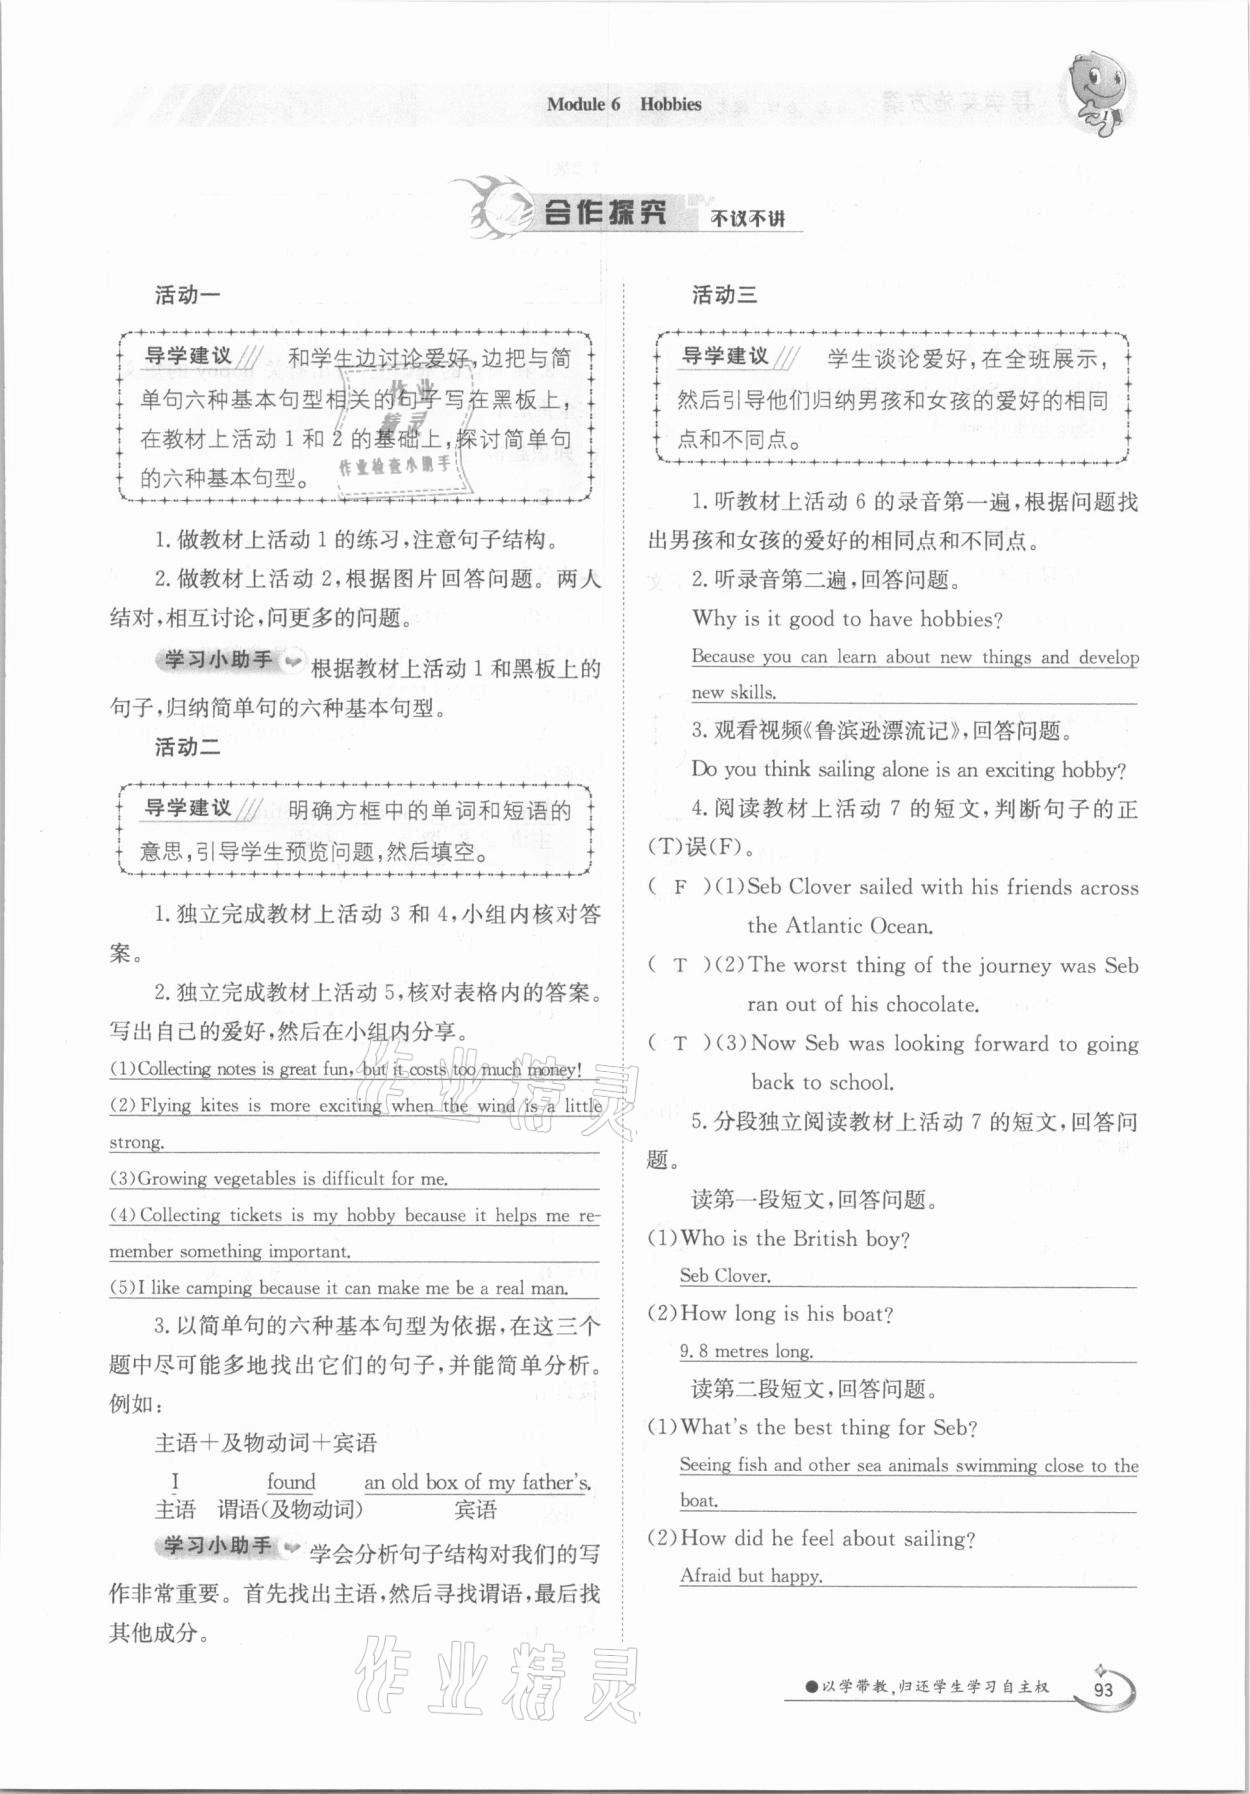 Module 6 Hobbies
合作探究 不议不讲
活动一
导学建议 和学生边讨论爱好,边把与简
单句六种基本句型相关的句子写在黑板上,
在教材上活动 1 和 2 的基础上,探讨简单句
的六种基本句型。
1. 做教材上活动 1 的练习,注意句子结构。
2. 做教材上活动 2,根据图片回答问题。两人
结对,相互讨论,问更多的问题。
学习小助手 根据教材上活动 1 和黑板上的
句子,归纳简单句的六种基本句型。
活动二
导学建议 明确方框中的单词和短语的
意思,引导学生预览问题,然后填空。
1. 独立完成教材上活动 3 和 4,小组内核对答
案。
2. 独立完成教材上活动 5,核对表格内的答案。
写出自己的爱好,然后在小组内分享。
(1)Collecting notes is great fun, but it costs too much money!
(2)Flying kites is more exciting when the wind is a little
strong.
(3)Growing vegetables is difficult for me.
(4)Collecting tickets is my hobby because it helps me re-
member something important.
(5)I like camping because it can make me be a real man.
3. 以简单句的六种基本句型为依据,在这三个
题中尽可能多地找出它们的句子,并能简单分析。
例如:
主语+及物动词+宾语
I found an old box of my father's.
主语 谓语(及物动词) 宾语
学习小助手 学会分析句子结构对我们的写
作非常重要。首先找出主语,然后寻找谓语,最后找
其他成分。
活动三
导学建议 学生谈论爱好,在全班展示,
然后引导他们归纳男孩和女孩的爱好的相同
点和不同点。
1. 听教材上活动 6 的录音第一遍,根据问题找
出男孩和女孩的爱好的相同点和不同点。
2. 听录音第二遍,回答问题。
Why is it good to have hobbies?
Because you can learn about new things and develop
new skills.
3. 观看视频《鲁滨逊漂流记》,回答问题。
Do you think sailing alone is an exciting hobby?
4. 阅读教材上活动 7 的短文,判断句子的正
(T)误(F)。
( F )(1)Seb Clover sailed with his friends across
the Atlantic Ocean.
( T )(2)The worst thing of the journey was Seb
ran out of his chocolate.
( T )(3)Now Seb was looking forward to going
back to school.
5. 分段独立阅读教材上活动 7 的短文,回答问
题。
读第一段短文,回答问题。
(1)Who is the British boy?
Seb Clover.
(2)How long is his boat?
9.8 metres long.
读第二段短文,回答问题。
(1)What's the best thing for Seb?
Seeing fish and other sea animals swimming close to the
boat.
(2)How did he feel about sailing?
Afraid but happy.
●以学带教,归还学生学习自主权
93
作业
精灵
作业检查小助手
作业精灵
作业精灵